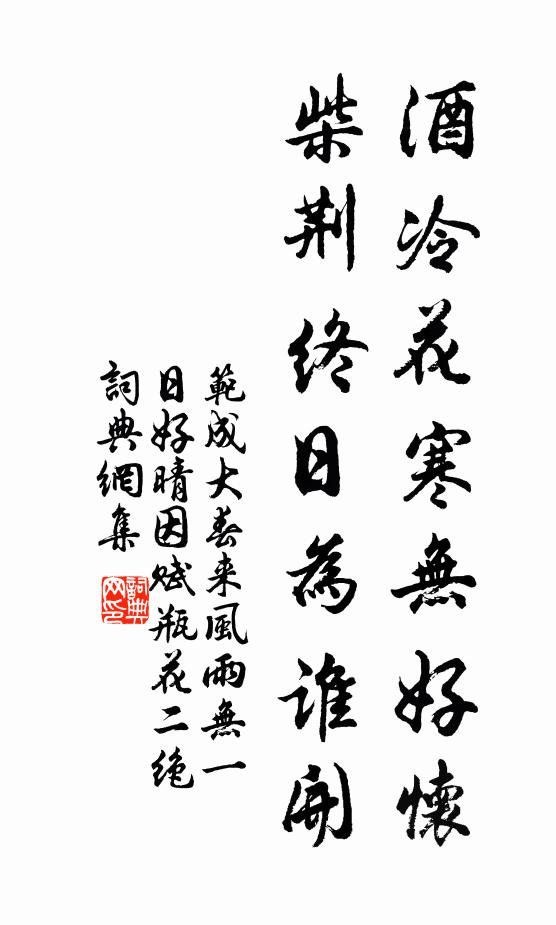 酒冷花寒無好懷
柴荆終日為誰開
範成大春来風雨無一
日好晴因賦瓶花二絶
詞典網集
詞典
网印